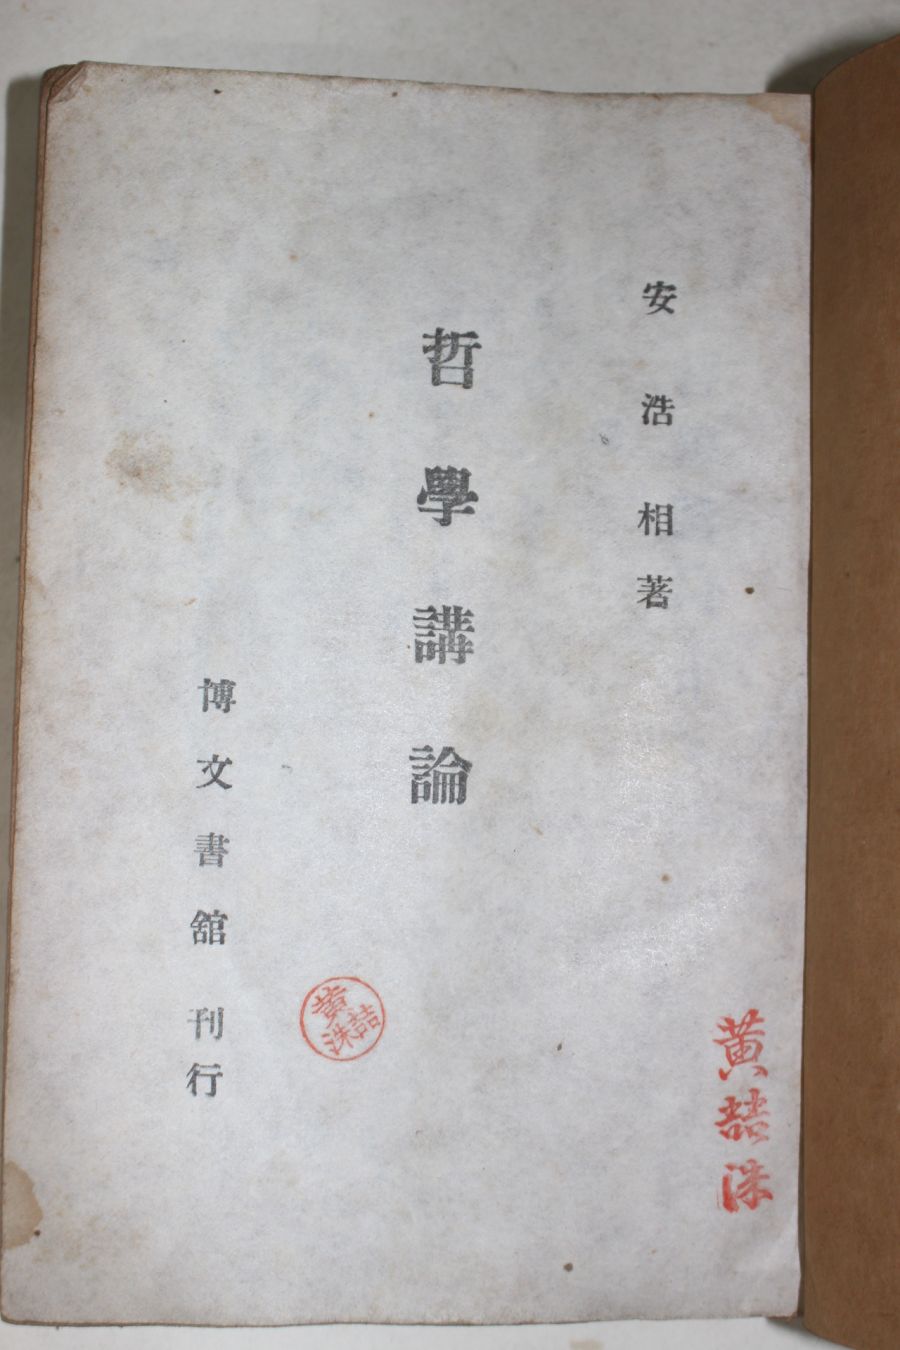 安浩相著
哲學講論
博文書舘 刊行
黃喆洙
黃喆洙